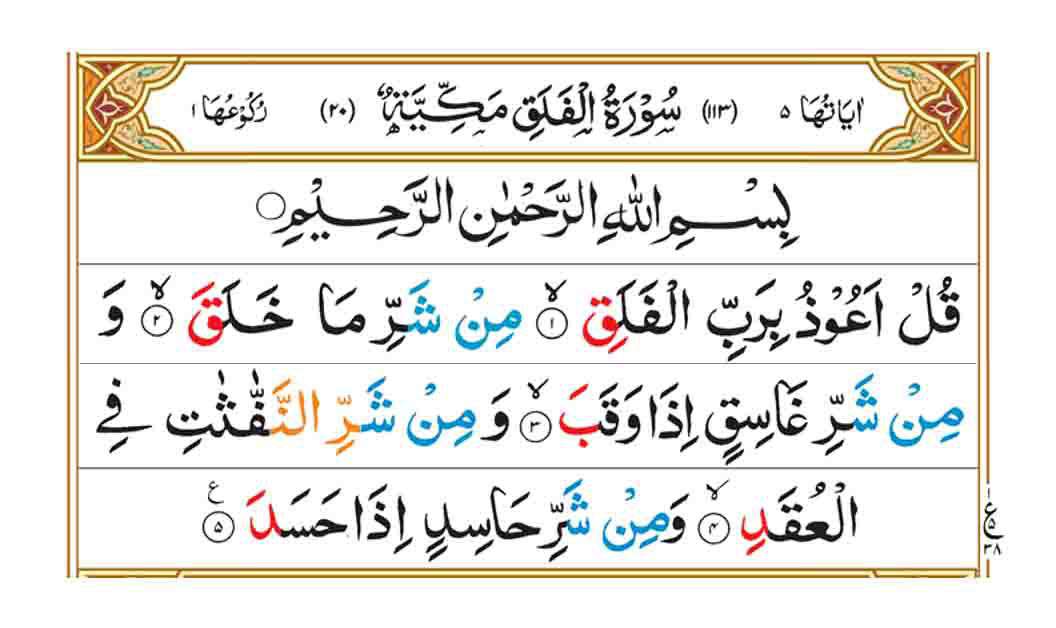 اٰیَاتُهَا ۵ (۱۱۳) سُوْرَةُ الْفَلَقِ مَكِّیَّةٌ (۲۰) رُكُوْعُهَا ۱
بِسْمِ اللّٰهِ الرَّحْمٰنِ الرَّحِیْمِ
قُلْ اَعُوْذُ بِرَبِّ الْفَلَقِ ۙ﴿۱﴾ مِنْ شَرِّ مَا خَلَقَ ۙ﴿۲﴾ وَ
مِنْ شَرِّ غَاسِقٍ اِذَا وَقَبَ ۙ﴿۳﴾ وَ مِنْ شَرِّ النَّفّٰثٰتِ فِی
الْعُقَدِ ۙ﴿۴﴾ وَمِنْ شَرِّ حَاسِدٍ اِذَا حَسَدَ ﴿۵﴾ ع
۱
ع ۵
۳۸